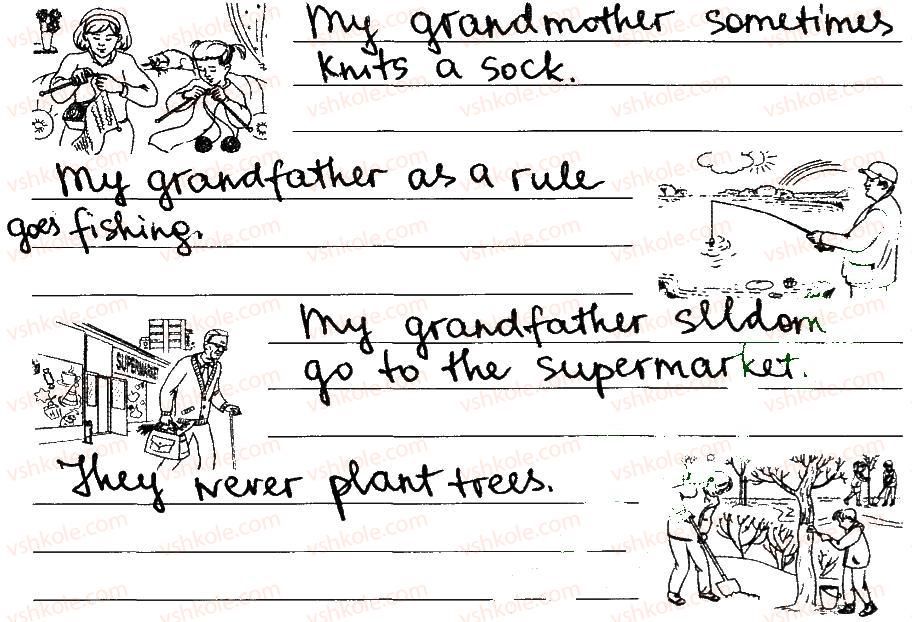 My grandmother sometimes
knits a sock.
My grandfather as a rule
goes fishing.
My grandfather seldom
go to the supermarket.
SUPERMARKET
They never plant trees.
vshkole.com